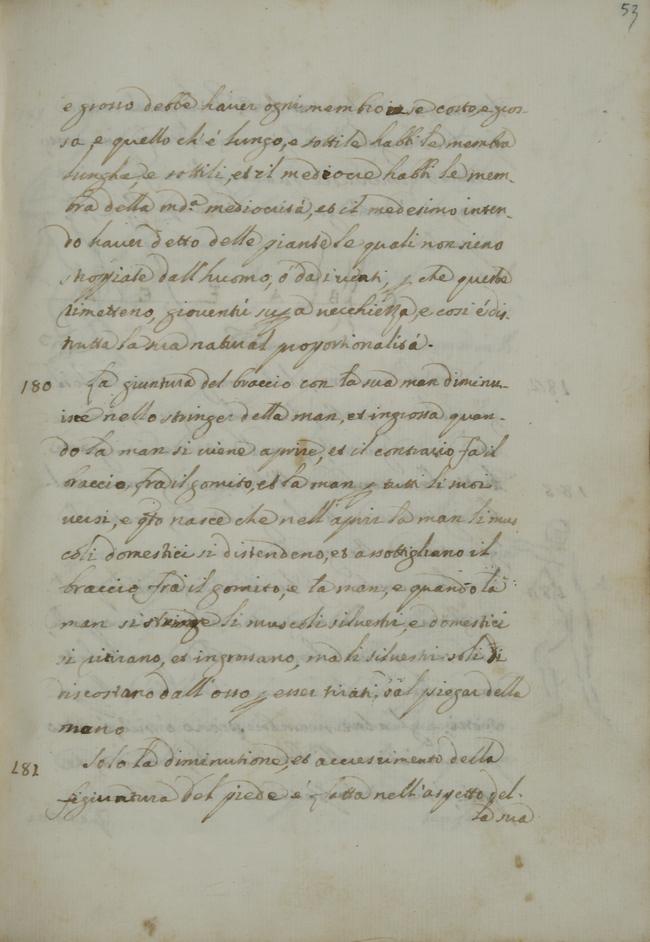 53
e grosso debbe haver ogni membro in se corto, e gros-
so, e quello ch'é lungo, e sottile habbi le membra
lunghe, e sottili, et il mediocre habbi le mem-
bra della md.ª mediocrità, et il medesimo inten-
do haver detto delle piante le quali non sieno
stroppiate dall'huomo, ó da i venti, che queste
rimetteno, gioventù sopra vecchiezza, e cosi é dis-
trutta la sua natural proportionalità.
180 La giuntura del braccio con la sua man diminu-
isce nello stringer della man, et ingrossa quan-
do la man si viene aprire, et il contrario fa il
braccio fra il gomito, et la man p tutti li suoi
versi, e qto nasce che nell'aprir la man li mus
coli domestici si distendeno, et assottigliano il
braccio fra il gomito, e la man, e quando la
man si stringe li muscoli silvestri, e domestici
si ritirano, et ingrossano, ma li silvestri soli si
discostano dall'osso p esser tirati dal piegar della
mano
181 Solo la diminutione, et accrescimento della
giuntura del piede é fatta nell'aspetto del-
la sua